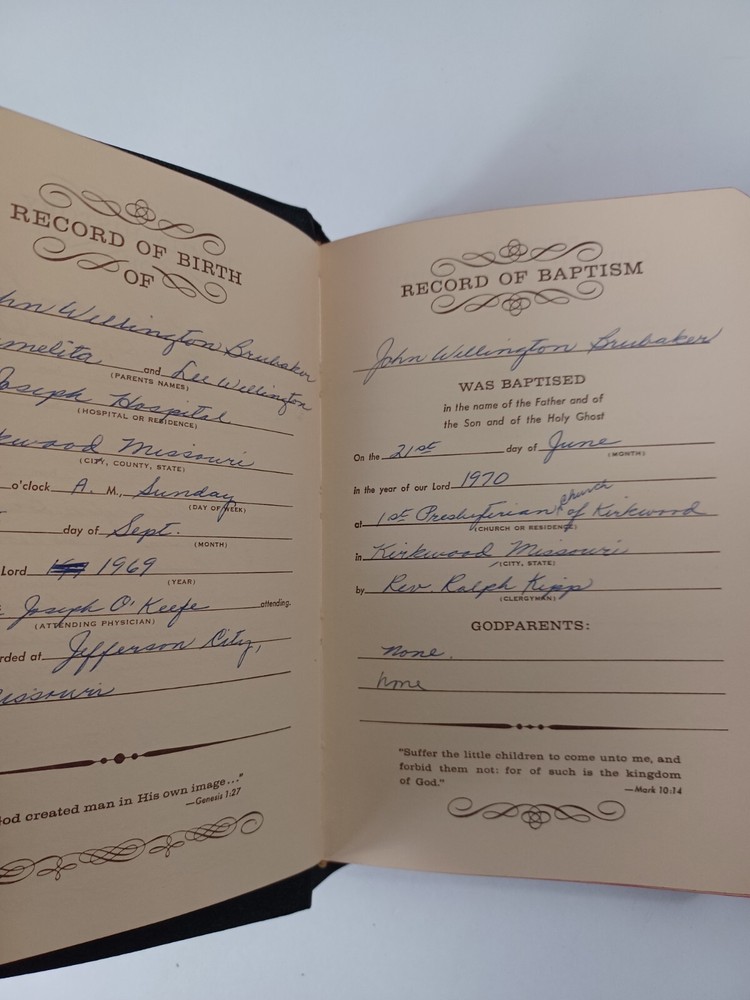 RECORD OF BIRTH
OF
hn Wellington Brubaker
melita and Lee Wellington
(PARENTS NAMES)
Joseph Hospital
(HOSPITAL OR RESIDENCE)
kwood Missouri
(CITY, COUNTY, STATE)
o'clock A. M., Sunday
(DAY OF WEEK)
day of Sept.
(MONTH)
Lord 1969
(YEAR)
Joseph O'Keefe attending.
(ATTENDING PHYSICIAN)
rded at Jefferson City,
issouri
God created man in His own image..."
—Genesis 1:27
RECORD OF BAPTISM
John Wellington Brubaker
WAS BAPTISED
in the name of the Father and of
the Son and of the Holy Ghost
On the 21st day of June
(MONTH)
in the year of our Lord 1970
at 1st Presbyterian church of Kirkwood
(CHURCH OR RESIDENCE)
in Kirkwood Missouri
(CITY, STATE)
by Rev. Ralph Kipp
(CLERGYMAN)
GODPARENTS:
none.
none
"Suffer the little children to come unto me, and
forbid them not: for of such is the kingdom
of God."
—Mark 10:14